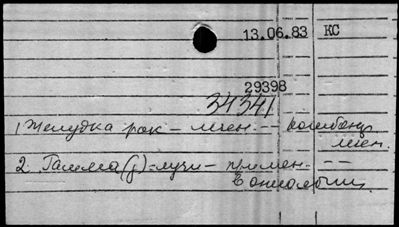 13.06.83 КС
29398
34341
1 Желудка рак – лечен. -- комбинир.
лечен.
2 Гамма (γ)-лучи – примен. --
в онкологии